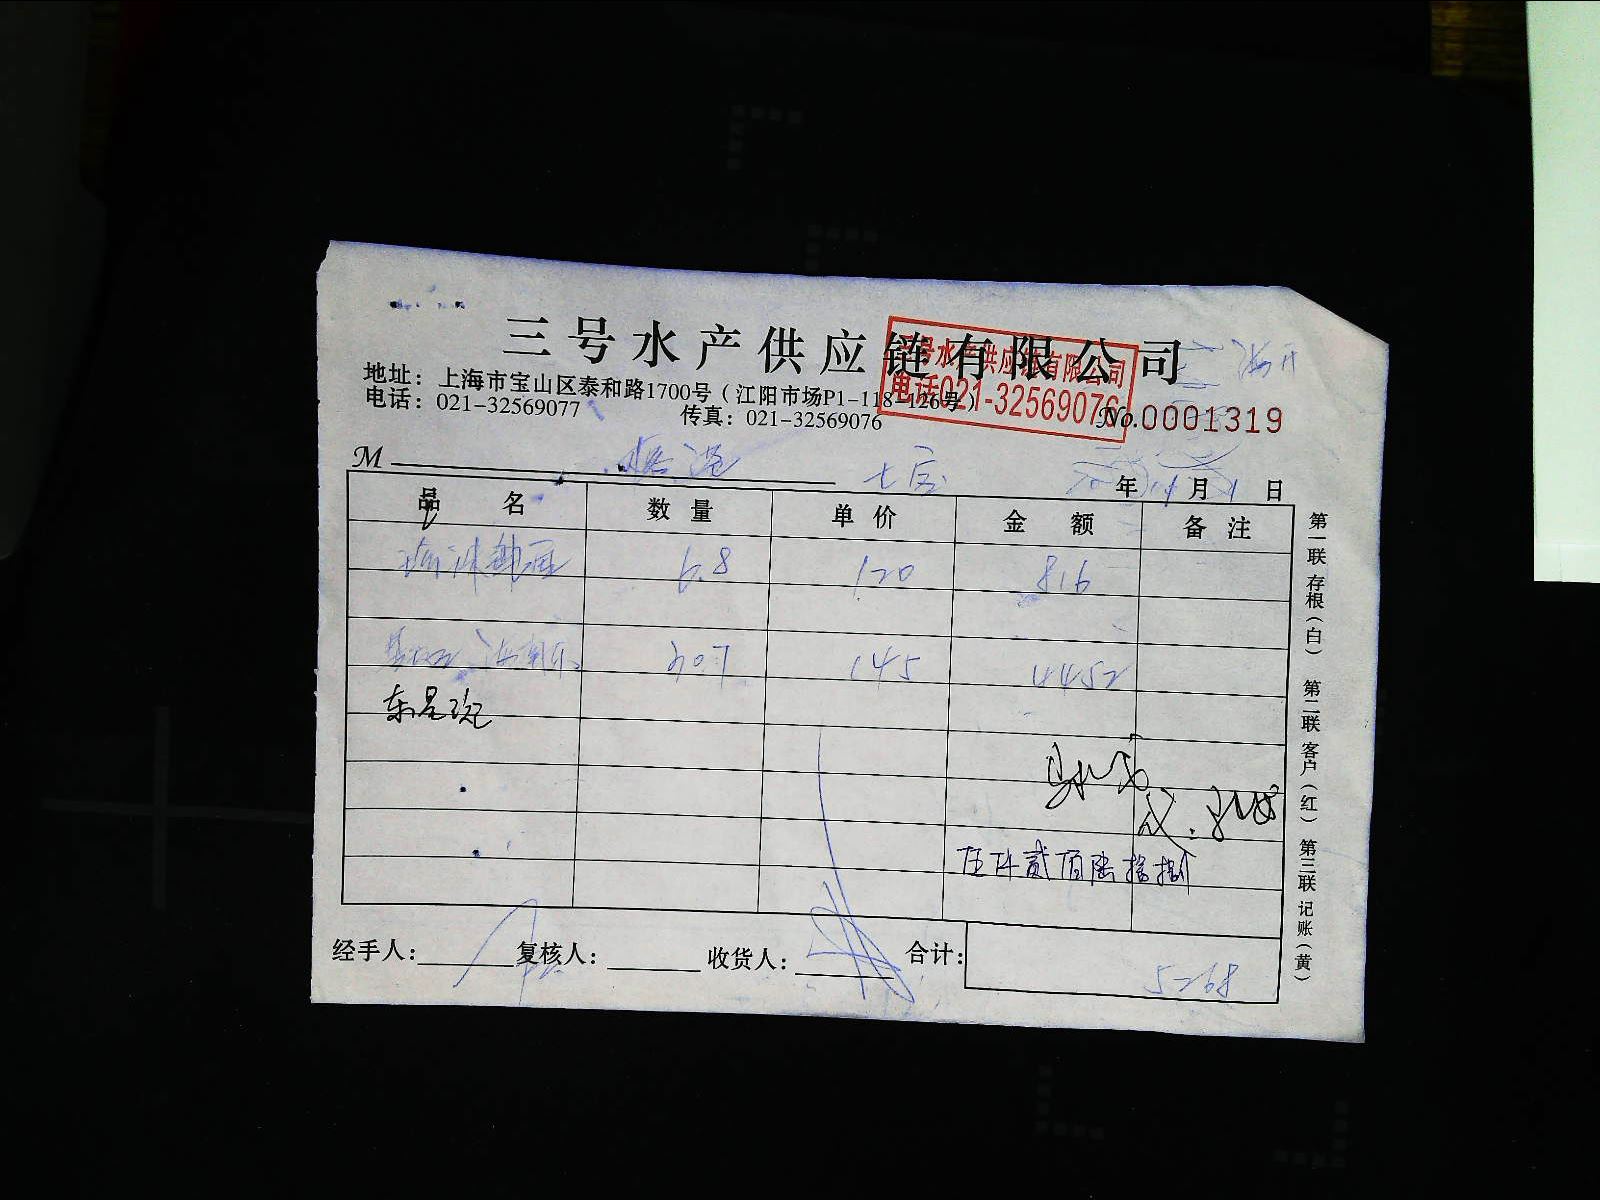 三号水产供应链有限公司
三号水产供应链有限公司
电话021-32569076
地址：上海市宝山区泰和路1700号（江阳市场P1-118-126号）
电话：021-32569077 传真：021-32569076
No.0001319
M 临港 七宝 年 11 月 1 日
品名 数量 单价 金额 备注
6.8 120 816
30.7 145 4452
东星斑
伍仟贰佰陆拾捌
经手人： 复核人： 收货人： 合计： 5268
第一联存根（白） 第二联客户（红） 第三联记账（黄）